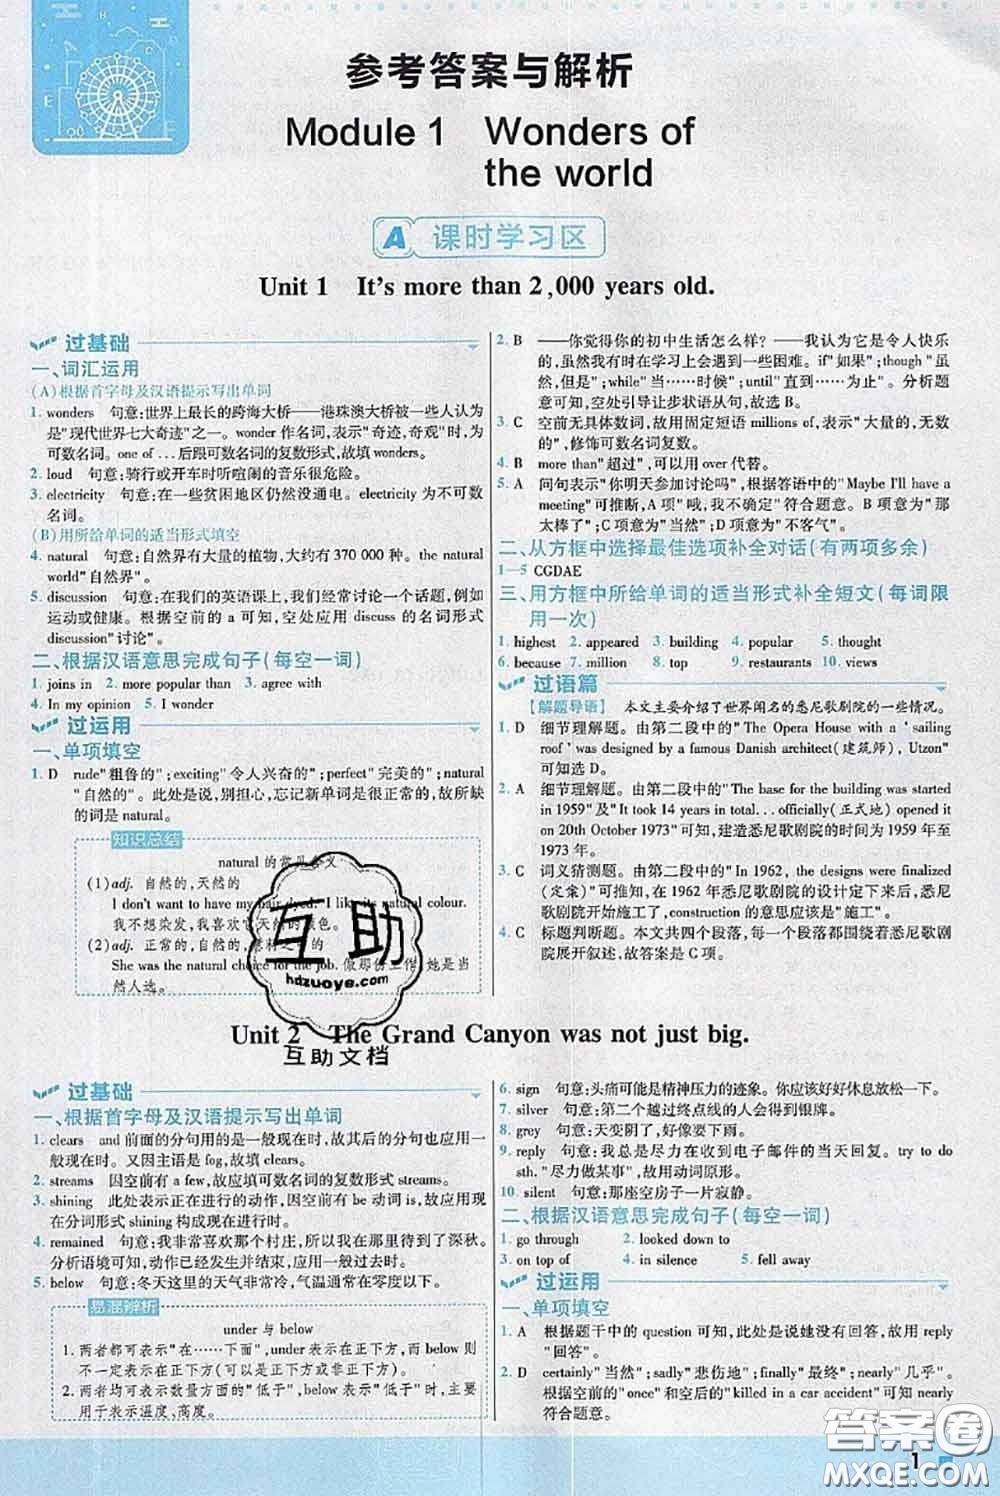 参考答案与解析
Module 1 Wonders of
the world
A 课时学习区
Unit 1 It's more than 2,000 years old.
过基础
一、词汇运用
(A)根据首字母及汉语提示写出单词
1. wonders 句意:世界上最长的跨海大桥——港珠澳大桥被一些人认为
是"现代世界七大奇迹"之一。wonder 作名词,表示"奇迹,奇观"时,为
可数名词。one of …后跟可数名词的复数形式,故填 wonders。
2. loud 句意:骑行或开车时听喧闹的音乐很危险。
3. electricity 句意:在一些贫困地区仍然没通电。electricity 为不可数
名词。
(B)用所给单词的适当形式填空
4. natural 句意:自然界有大量的植物,大约有 370 000 种。the natural
world"自然界"。
5. discussion 句意:在我们的英语课上,我们经常讨论一个话题,例如
运动或健康。根据空前的 a 可知,空处应用 discuss 的名词形式
discussion"讨论"。
二、根据汉语意思完成句子(每空一词)
1. joins in 2. more popular than 3. agree with
4. In my opinion 5. I wonder
过运用
一、单项填空
1. D rude"粗鲁的";exciting"令人兴奋的";perfect"完美的";natural
"自然的"。此处是说,别担心,忘记新单词是很正常的,故所缺
的词是 natural。
知识总结
natural 的常见含义
(1)adj. 自然的,天然的
I don't want to have my hair dyed. I like its natural colour.
我不想染发,我喜欢它天然的颜色。
(2)adj. 正常的,自然的,意料之中的
She was the natural choice for the job. 做那份工作,她是当
然人选。
2. B ——你觉得你的初中生活怎么样?——我认为它是令人快乐
的,虽然我有时在学习上会遇到一些困难。if"如果";though"虽
然,但是";while"当……时候";until"直到……为止"。分析题
意可知,空处引导让步状语从句,故选 B。
3. C 空前无具体数词,故用固定短语 millions of,表示"大量的,无数
的",修饰可数名词复数。
4. B more than"超过",可以用 over 代替。
5. A 问句表示"你明天参加讨论吗",根据答语中的"Maybe I'll have a
meeting"可推断,A 项"哦,我不确定"符合题意。B 项意为"那
太棒了";C 项意为"当然";D 项意为"不客气"。
二、从方框中选择最佳选项补全对话(有两项多余)
1—5 CGDAE
三、用方框中所给单词的适当形式补全短文(每词限
用一次)
1. highest 2. appeared 3. building 4. popular 5. thought
6. because 7. million 8. top 9. restaurants 10. views
过语篇
【解题导语】 本文主要介绍了世界闻名的悉尼歌剧院的一些情况。
1. D 细节理解题。由第二段中的"The Opera House with a 'sailing
roof' was designed by a famous Danish architect(建筑师), Utzon"
可知选 D。
2. A 细节理解题。由第二段中的"The base for the building was started
in 1959"及"It took 14 years in total… officially(正式地) opened it
on 20th October 1973"可知,建造悉尼歌剧院的时间为 1959 年至
1973 年。
3. C 词义猜测题。由第二段中的"In 1962, the designs were finalized
(定案)"可推知,在 1962 年悉尼歌剧院的设计定下来后,悉尼
歌剧院开始施工了,construction 的意思应该是"施工"。
4. C 标题判断题。本文共四个段落,每一个段落都围绕着悉尼歌剧
院展开叙述,故答案是 C 项。
互助
hdzuoye.com
互助文档
Unit 2 The Grand Canyon was not just big.
过基础
一、根据首字母及汉语提示写出单词
1. clears and 前面的分句用的是一般现在时,故其后的分句也应用一
般现在时。又因主语是 fog,故填 clears。
2. streams 因空前有 a few,故应填可数名词的复数形式 streams。
3. shining 此处表示正在进行的动作,因空前有 be 动词 is,故应用现
在分词形式 shining 构成现在进行时。
4. remained 句意:我非常喜欢那个村庄,所以我在那里待到了深秋。
分析语境可知,动作已经发生并结束,应用一般过去时。
5. below 句意:冬天这里的天气非常冷,气温通常在零度以下。
易混辨析
under 与 below
1. 两者都可表示"在……下面",under 表示在正下方,below
不一定表示在正下方(可以是正下方或非正下方)。
2. 两者均可表示数量方面的"低于",below 表示"低于"时,主要
用于表示温度、高度。
6. sign 句意:头痛可能是精神压力的迹象。你应该好好休息放松一下。
7. silver 句意:第二个越过终点线的人会得到银牌。
8. grey 句意:天变阴了,好像要下雨。
9. reply 句意:我总是尽力在收到电子邮件的当天回复。try to do
sth."尽力做某事",故用动词原形。
10. silent 句意:那座空房子一片寂静。
二、根据汉语意思完成句子(每空一词)
1. go through 2. looked down to
3. on top of 4. in silence 5. fell away
过运用
一、单项填空
1. A 根据题干中的 question 可知,此处是说她没有回答,故用 reply
"回答"。
2. D certainly"当然";sadly"悲伤地";finally"最终";nearly"几乎"。
根据空前的"once"和空后的"killed in a car accident"可知 nearly
符合题意。
答案圈
MXQE.COM
1